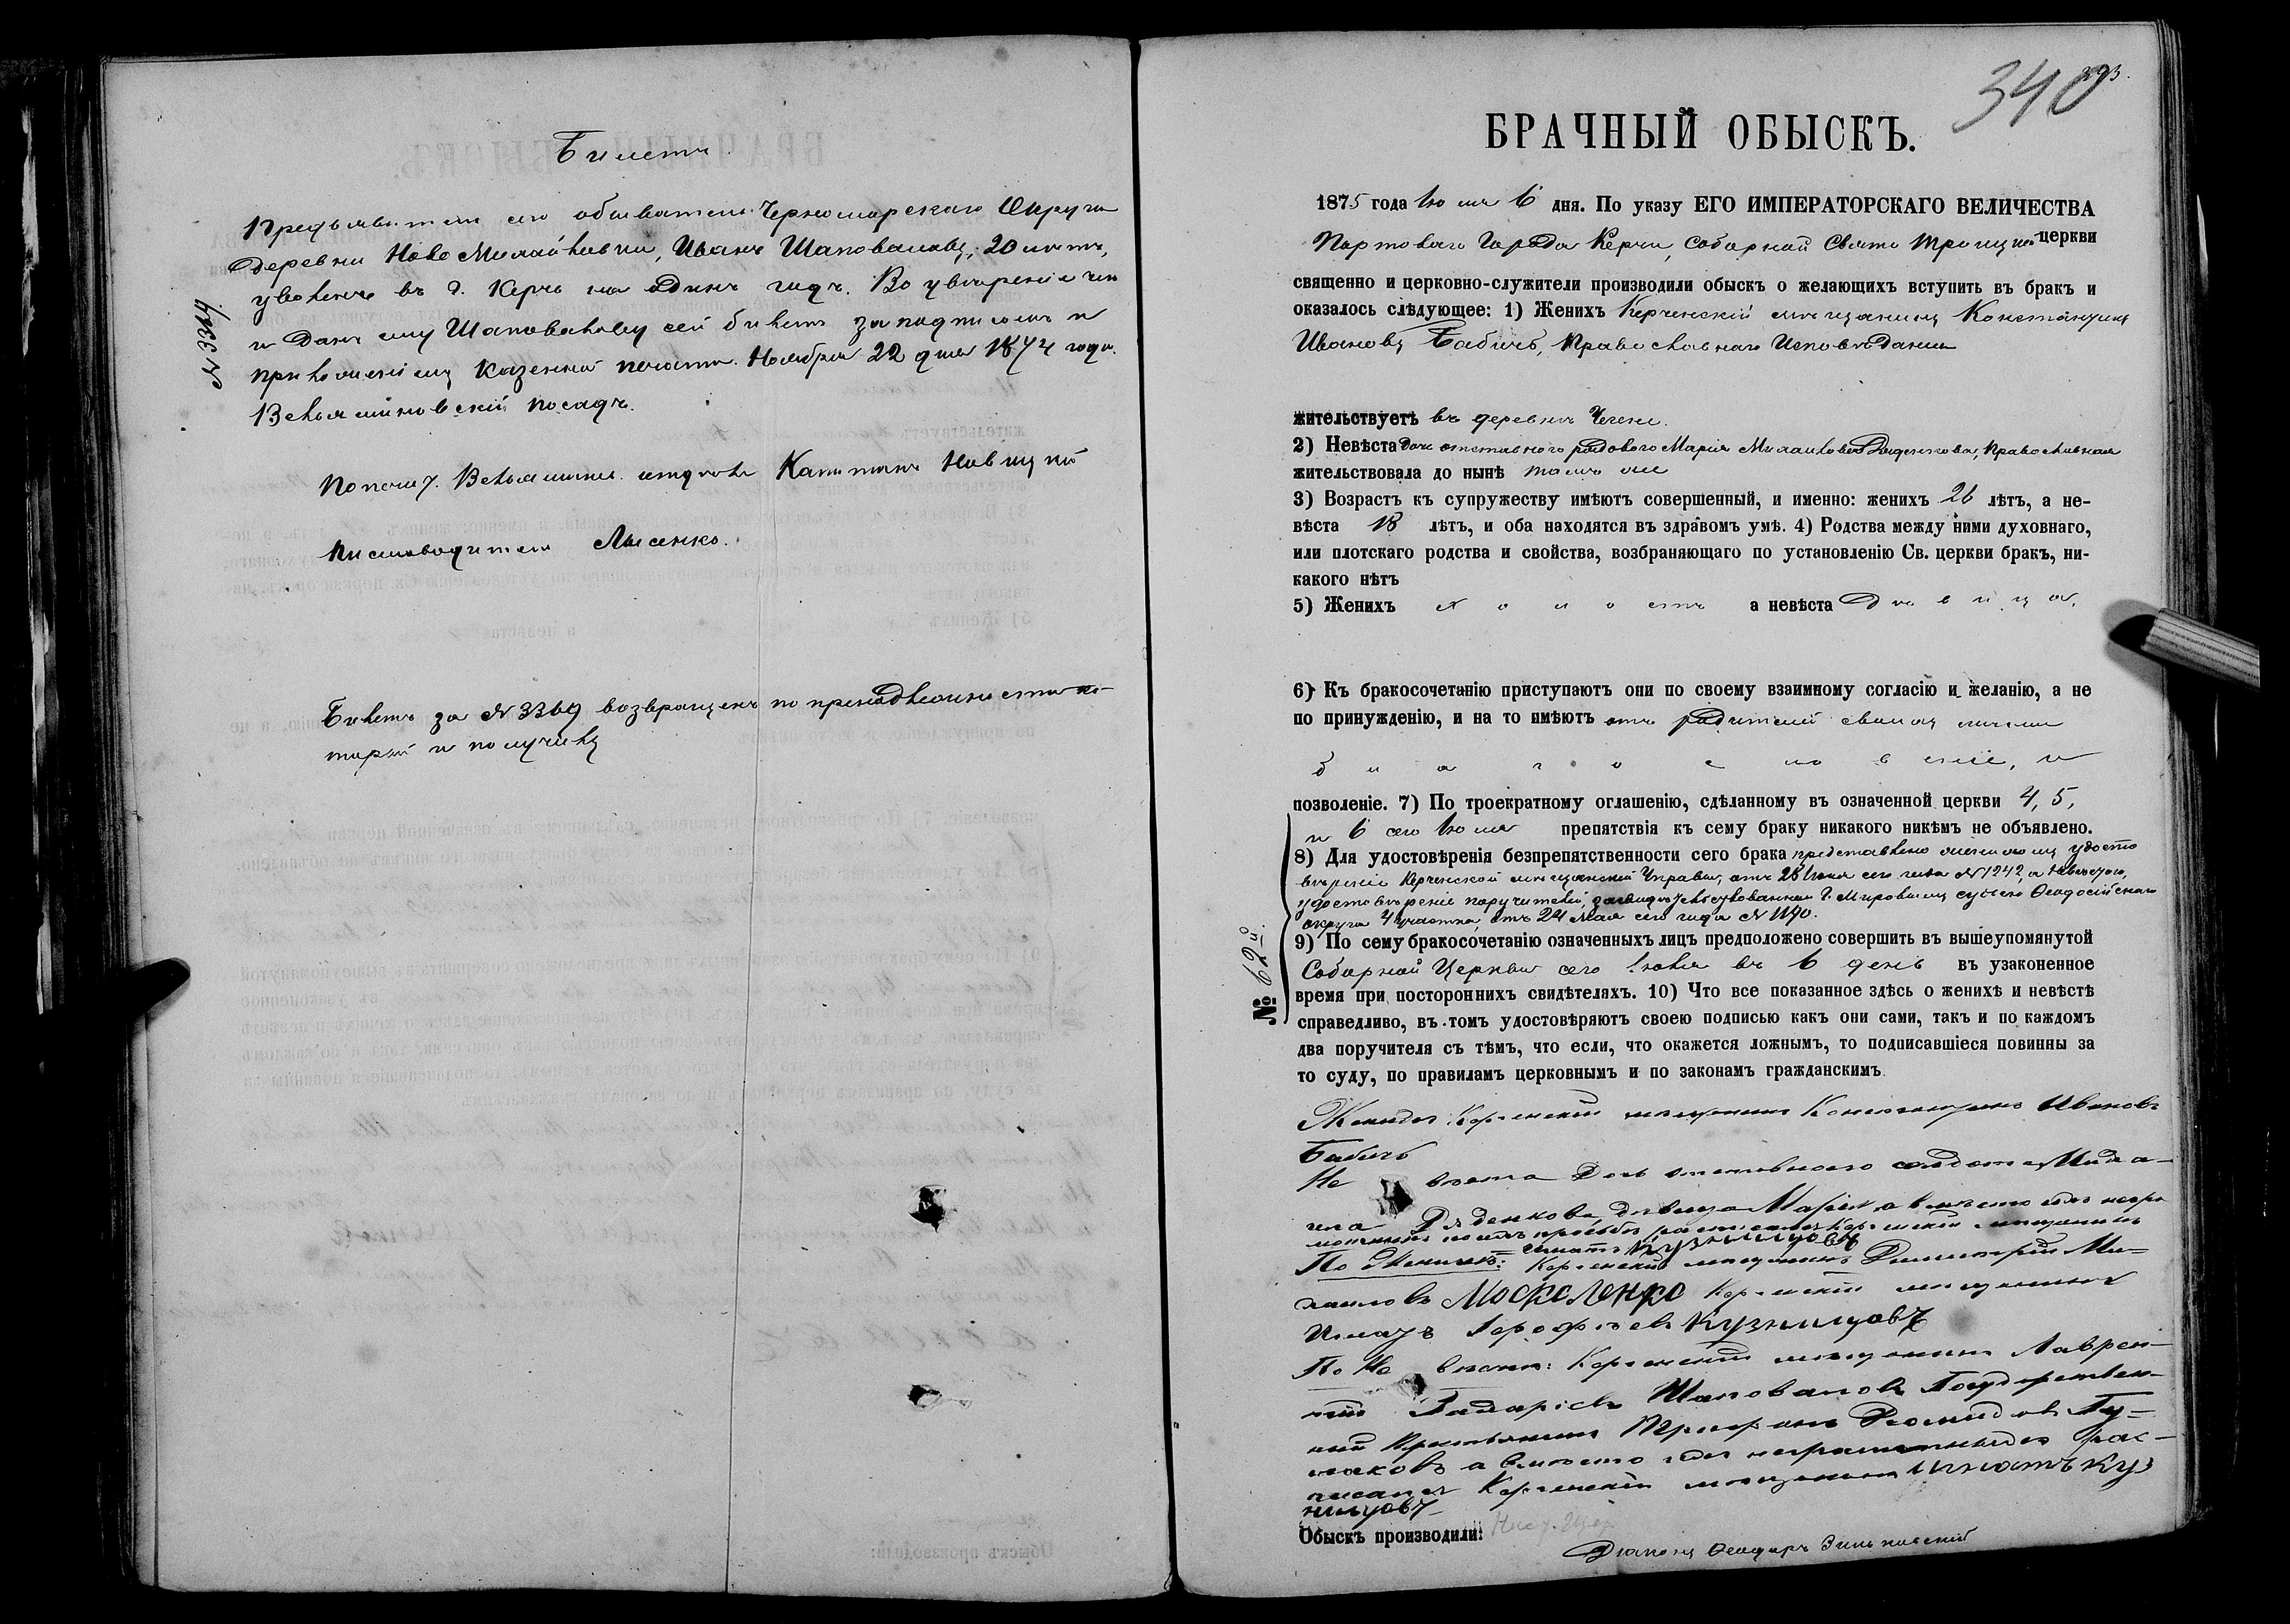 Билетъ.
Предъявитель сего обыватель Черноморскаго Округа
деревни Ново Михайловки, Иванъ Шаповаловъ, 20 лѣтъ,
уволенъ въ г. Керчь на одинъ годъ. Во увѣреніе чего
и данъ ему Шаповалову сей билетъ за подписомъ и
приложеніемъ казенной печати. Ноября 22 дня 1874 года.
Вельяминовскій посадъ.
№ 3369
Попечит. Вельямин. отдѣла Капитанъ Новицкій
Письмоводитель Лысенко.
Билетъ за № 3369 возвращенъ по принадлежности ко-
торый и получилъ
340
293.
БРАЧНЫЙ ОБЫСКЪ.
1875 года Іюля 6 дня. По указу ЕГО ИМПЕРАТОРСКАГО ВЕЛИЧЕСТВА
Портоваго Города Керчи, соборной Свято Троицкой церкви
священно и церковно-служители производили обыскъ о желающихъ вступить въ бракъ и
оказалось слѣдующее: 1) Женихъ Керченскій мѣщанинъ Константинъ
Ивановъ Бабичъ, Православнаго Исповѣданія
жительствуетъ въ деревнѣ Чегене.
2) Невѣста дочь отставного рядового Марія Михаилова Дяденкова, Православная
жительствовала до нынѣ тамъ же
3) Возрастъ къ супружеству имѣютъ совершенный, и именно: женихъ 26 лѣтъ, а не-
вѣста 18 лѣтъ, и оба находятся въ здравомъ умѣ. 4) Родства между ними духовнаго,
или плотскаго родства и свойства, возбраняющаго по установленію Св. церкви бракъ, ни-
какого нѣтъ
5) Женихъ холостъ а невѣста дѣвица,
6) Къ бракосочетанію приступаютъ они по своему взаимному согласію и желанію, а не
по принужденію, и на то имѣютъ отъ родителей своихъ
благословеніе, и
позволеніе. 7) По троекратному оглашенію, сдѣланному въ означенной церкви 4, 5,
и 6 сего Іюля препятствія къ сему браку никакого никѣмъ не объявлено.
8) Для удостовѣренія безпрепятственности сего брака представлено женихомъ удосто
вѣреніе Керченской мѣщанской Управы, отъ 28 Іюня сего года № 1242, а невѣстою,
удостовѣреніе поручителей, засвидѣтельствованное Г. Мировымъ судьею Ѳеодосійскаго
округа 4 участка, отъ 24 Мая сего года №
9) По сему бракосочетанію означенныхъ лицъ предположено совершить въ вышеупомянутой
Соборной Церкви сего Іюля въ 6 день въ узаконенное
время при постороннихъ свидѣтеляхъ. 10) Что все показанное здѣсь о женихѣ и невѣстѣ
справедливо, въ томъ удостовѣряютъ своею подписью какъ они сами, такъ и по каждомъ
два поручителя съ тѣмъ, что если, что окажется ложнымъ, то подписавшіеся повинны за
то суду, по правиламъ церковнымъ и по законамъ гражданскимъ
№ 62й.
Женихъ Керченскій мѣщанинъ Константинъ Ивановъ
Бабичъ
Невѣста Дочь отставного солдата Миха-
ила Дяденкова дѣвица Марія а вмѣсто ея негра
мотной по ея прозьбѣ росписался Керченскій мѣщанинъ
Игнатъ Кузнецовъ
По Женихѣ: Керченскій мѣщанинъ Димитрій Ми-
хаиловъ Москаленко Керченскій мѣщанинъ
Игнатъ Кузнецовъ
По Невѣстѣ: Керченскій мѣщанинъ Лаврен-
тій Шаповаловъ Государствен-
ный Крестьянинъ Трифонъ
а вмѣсто ихъ неграмотныхъ рос-
писался Керченскій мѣщанинъ Игнатъ Куз
нецовъ
Обыскъ производили:
Діаконъ Ѳеодоръ Зиньковскій